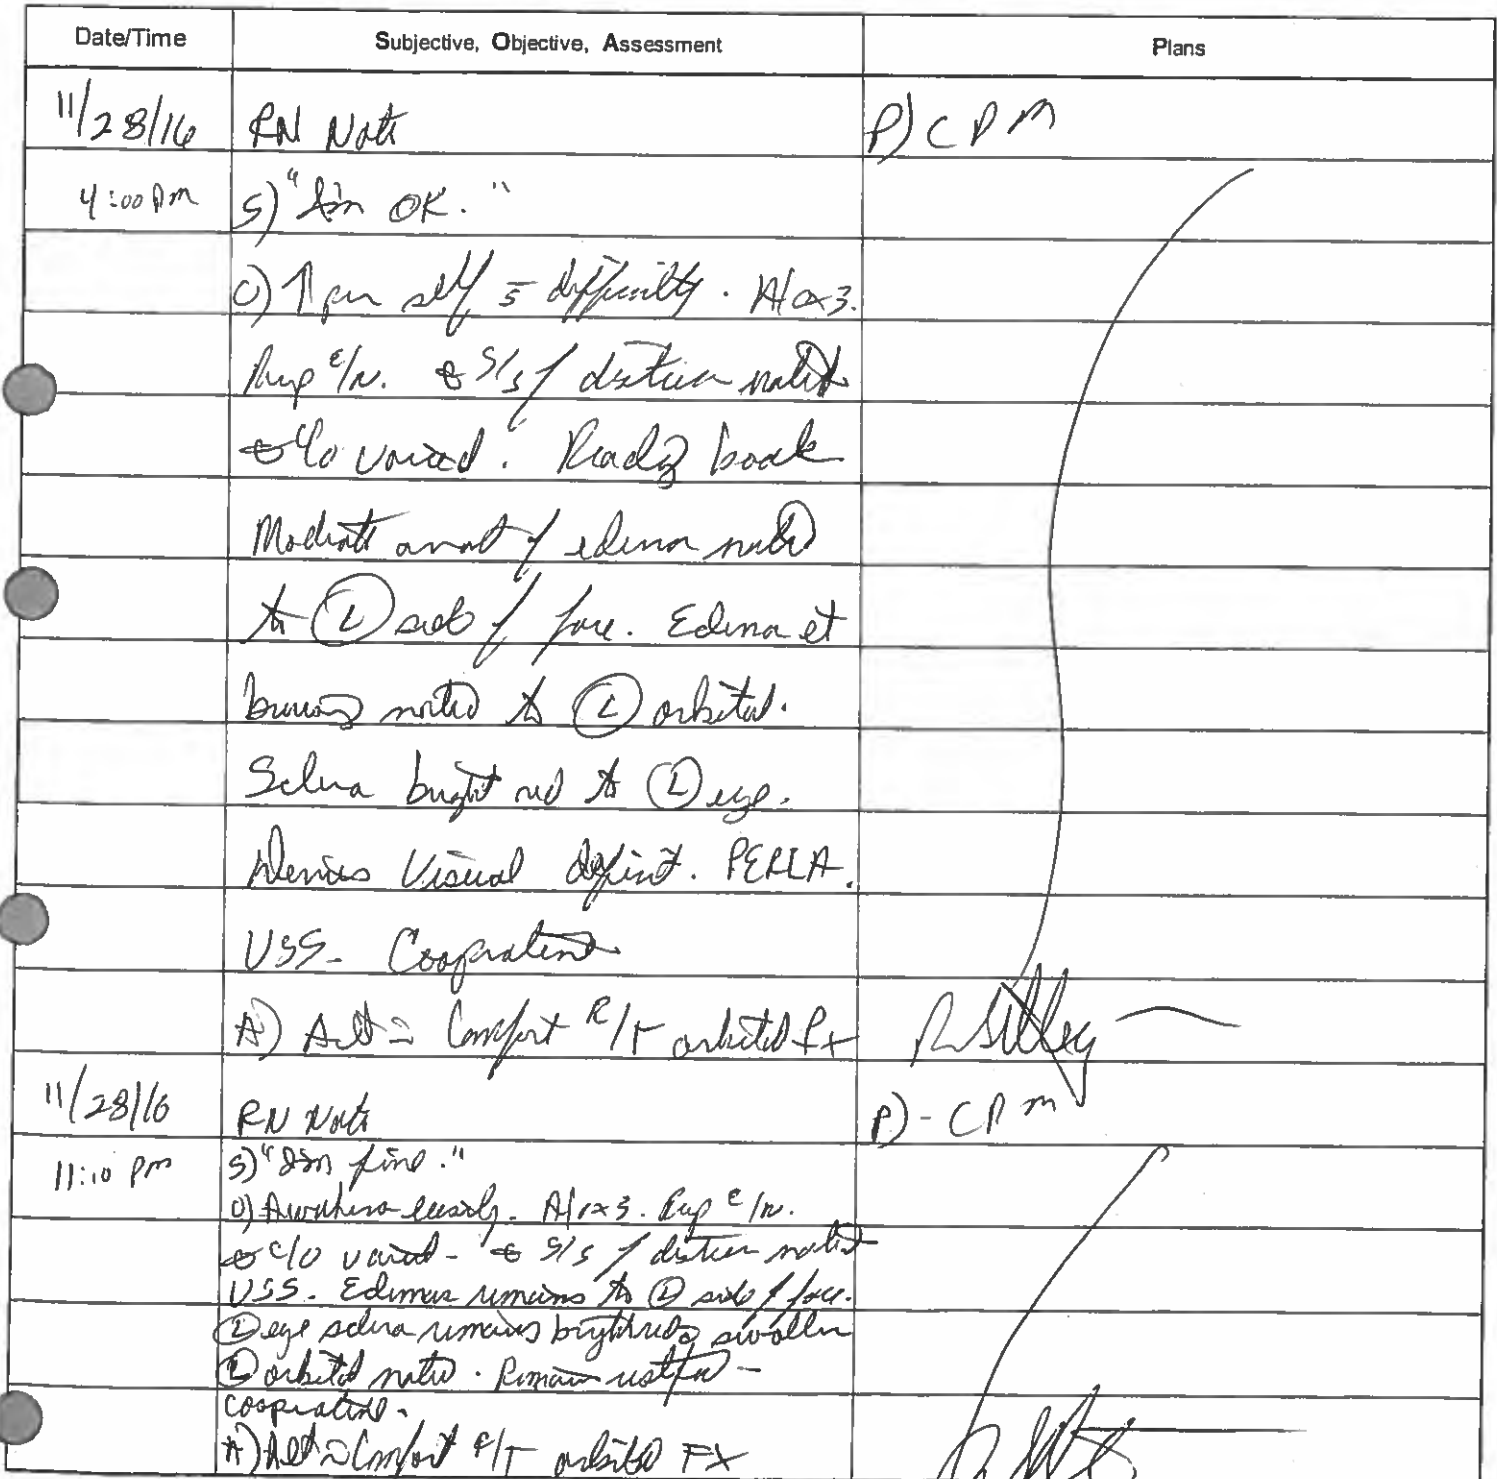 Date/Time Subjective, Objective, Assessment Plans
11/28/16 RN Note P) CPM
4:00 pm S) "I'm OK."
O) ↑ per self s̄ difficulty. A/Ox3.
Resp e/n. ∅ S/S of distress noted
∅ c/o voiced. Reading book
Moderate amt of edema noted
to Ⓛ side of face. Edema et
bruising noted to Ⓛ orbital.
Sclera bright red to Ⓛ eye.
Denies Visual deficit. PERLA.
VSS. Cooperative
A) Alt in Comfort R/T orbital fx
11/28/16 RN Note P) - CPM
11:10 pm S) "I'm fine."
O) Awakens easily. A/Ox3. Resp e/n.
∅ c/o voiced - ∅ S/S of distress noted
VSS. Edema remains to Ⓛ side of face.
Ⓛ eye sclera remains bright red swollen
Ⓛ orbital noted. Remains restful -
cooperative.
A) Alt in Comfort R/T orbital FX